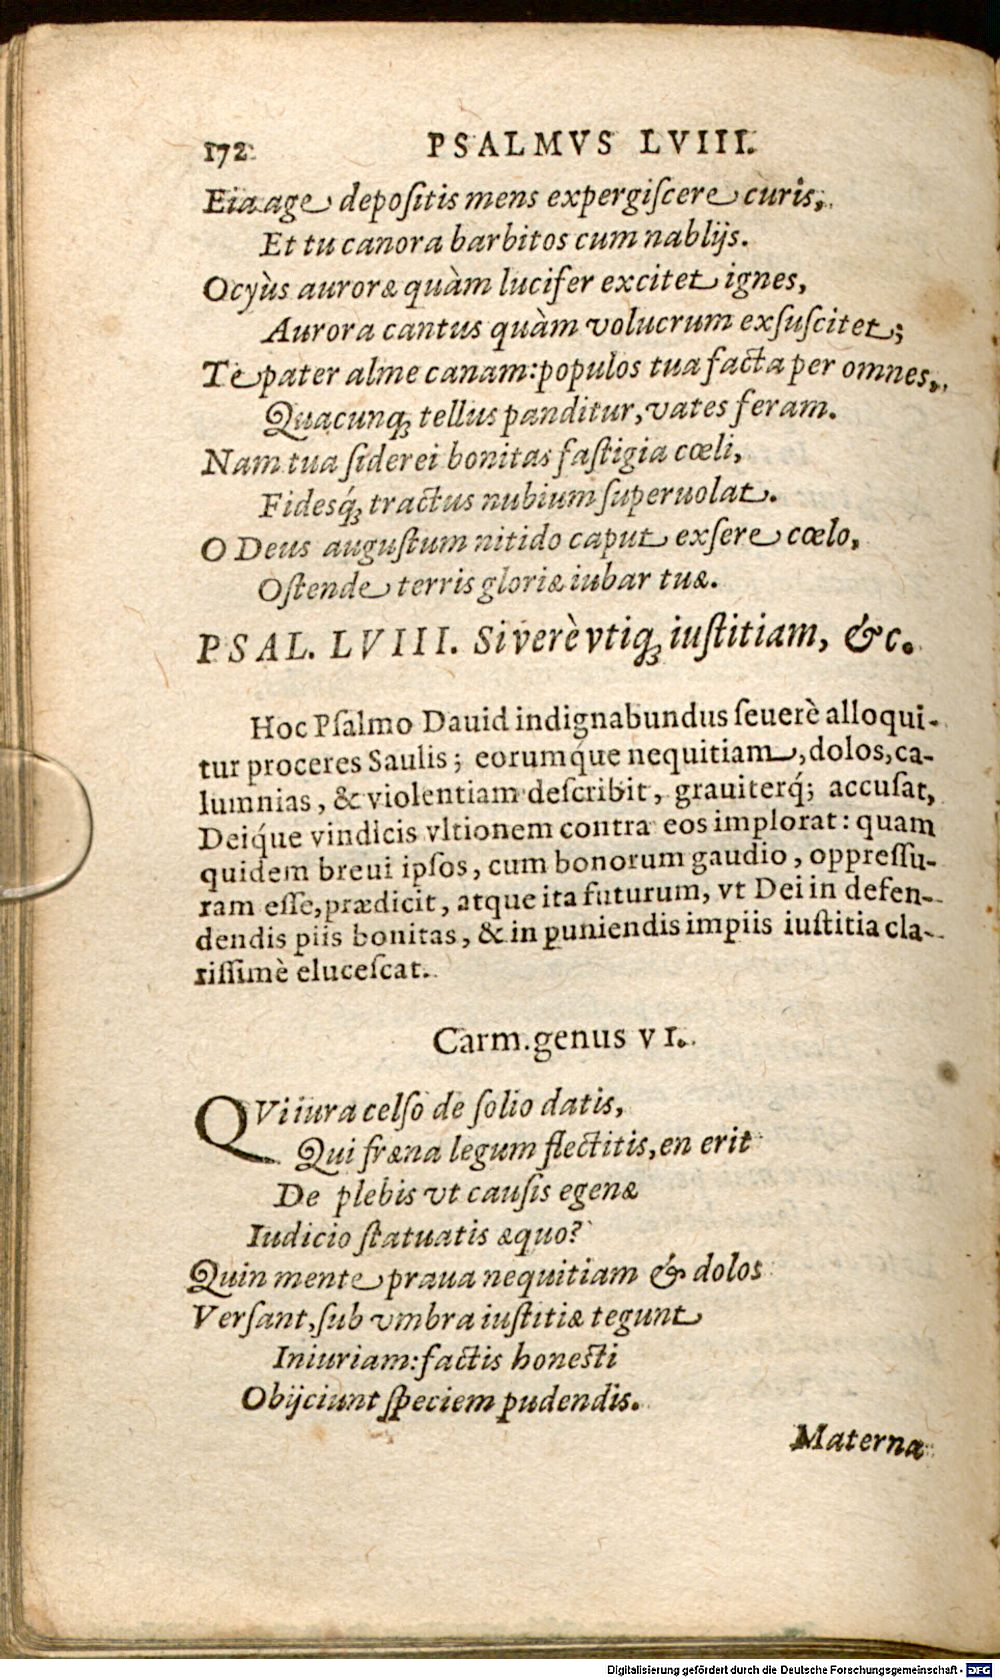 172 PSALMVS LVIII.
Eia age depoſitis mens expergiſcere curis,
Et tu canora barbitos cum nablijs.
Ocyùs auroræ quàm lucifer excitet ignes,
Aurora cantus quàm volucrum exſuſcitet;
Te pater alme canam: populos tua facta per omnes,
Quacunq; tellus panditur, vates feram.
Nam tua ſiderei bonitas faſtigia cœli,
Fidesq́; tractus nubium ſuperuolat.
O Deus auguſtum nitido caput exſere cœlo,
Oſtende terris gloriæ iubar tuæ.
PSAL. LVIII. Si verè vtiq; iuſtitiam, &c.
Hoc Pſalmo Dauid indignabundus ſeuerè alloqui-
tur proceres Saulis; eorumq́ue nequitiam, dolos, ca-
lumnias, & violentiam deſcribit, grauiterq́; accuſat,
Deiq́ue vindicis vltionem contra eos implorat: quam
quidem breui ipſos, cum bonorum gaudio, oppreſſu-
ram eſſe, prædicit, atque ita futurum, vt Dei in defen-
dendis piis bonitas, & in puniendis impiis iuſtitia cla-
riſſimè eluceſcat.
Carm. genus VI.
QVi iura celſo de ſolio datis,
Qui fræna legum flectitis, en erit
De plebis vt cauſis egenæ
Iudicio ſtatuatis æquo?
Quin mente praua nequitiam & dolos
Verſant, ſub vmbra iuſtitiæ tegunt
Iniuriam: factis honeſti
Obijciunt ſpeciem pudendis.
Materna
Digitalisierung gefördert durch die Deutsche Forschungsgemeinschaft - DFG